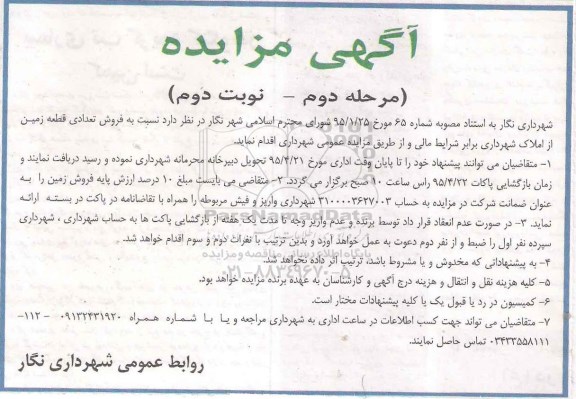 آگهی مزایده
(مرحله دوم – نوبت دوم)
شهرداری نگار به استناد مصوبه شماره ۶۵ مورخ ۹۵/۱/۲۵ شورای محترم اسلامی شهر نگار در نظر دارد نسبت به فروش تعدادی قطعه زمین
از املاک شهرداری برابر شرایط مالی و از طریق مزایده عمومی شهرداری اقدام نماید.
۱- متقاضیان می توانند پیشنهاد خود را تا پایان وقت اداری مورخ ۹۵/۴/۲۱ تحویل دبیرخانه محرمانه شهرداری نموده و رسید دریافت نمایند و
زمان بازگشایی پاکات ۹۵/۴/۲۲ راس ساعت ۱۰ صبح برگزار می گردد. ۲- متقاضی می بایست مبلغ ۱۰ درصد ارزش پایه فروش زمین را به
عنوان ضمانت شرکت در مزایده به حساب ۳۱۰۰۰۰۳۶۲۷۰۰۳ شهرداری واریز و فیش مربوطه را همراه با تقاضانامه در پاکت در بسته ارائه
نماید. ۳- در صورت عدم انعقاد قرار داد توسط برنده و عدم واریز وجه تا مدت یک هفته از بازگشایی پاکت ها به حساب شهرداری ، شهرداری
سپرده نفر اول را ضبط و از نفر دوم دعوت به عمل خواهد آورد و بدین ترتیب با نفرات دوم و سوم اقدام خواهد شد.
۴- به پیشنهاداتی که مخدوش و یا مشروط باشد، ترتیب اثر داده نخواهد شد.
۵- کلیه هزینه نقل و انتقال و هزینه درج آگهی و کارشناسان به عهده برنده مزایده خواهد بود.
۶- کمیسیون در رد یا قبول یک یا کلیه پیشنهادات مختار است.
۷- متقاضیان می توانند جهت کسب اطلاعات در ساعت اداری به شهرداری مراجعه و یا با شماره همراه ۰۹۱۳۲۴۳۱۹۲۰ -۱۱۲-
۰۳۴۳۳۵۵۸۱۱۱ تماس حاصل نمایند.
روابط عمومی شهرداری نگار
۰۲۱-۸۸۳۴۹۶۷۰-۵